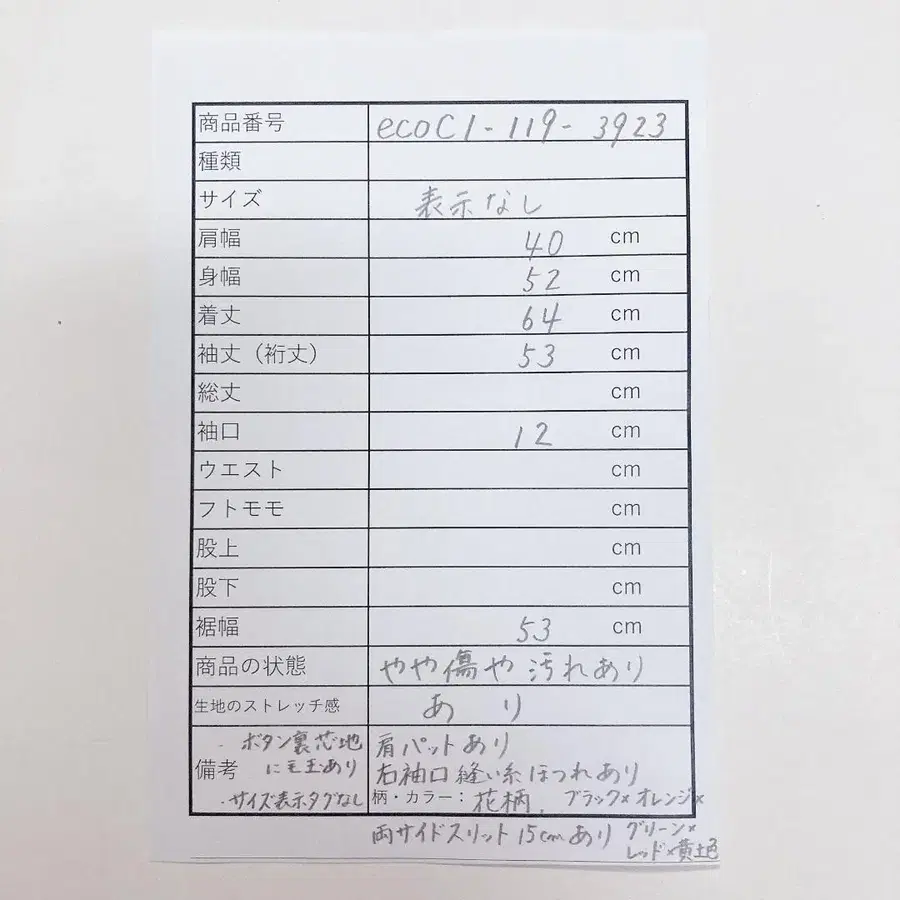 商品番号 ecoC1-119-3923
種類
サイズ 表示なし
肩幅 40 cm
身幅 52 cm
着丈 64 cm
袖丈（裄丈） 53 cm
総丈 cm
袖口 12 cm
ウエスト cm
フトモモ cm
股上 cm
股下 cm
裾幅 53 cm
商品の状態 やや傷や汚れあり
生地のストレッチ感 あり
備考
・ボタン裏芯地
に毛玉あり
・サイズ表示タグなし
肩パットあり
右袖口縫い糸ほつれあり
柄・カラー：花柄、ブラック×オレンジ×
グリーン×
レッド×黄土色
両サイドスリット15cmあり